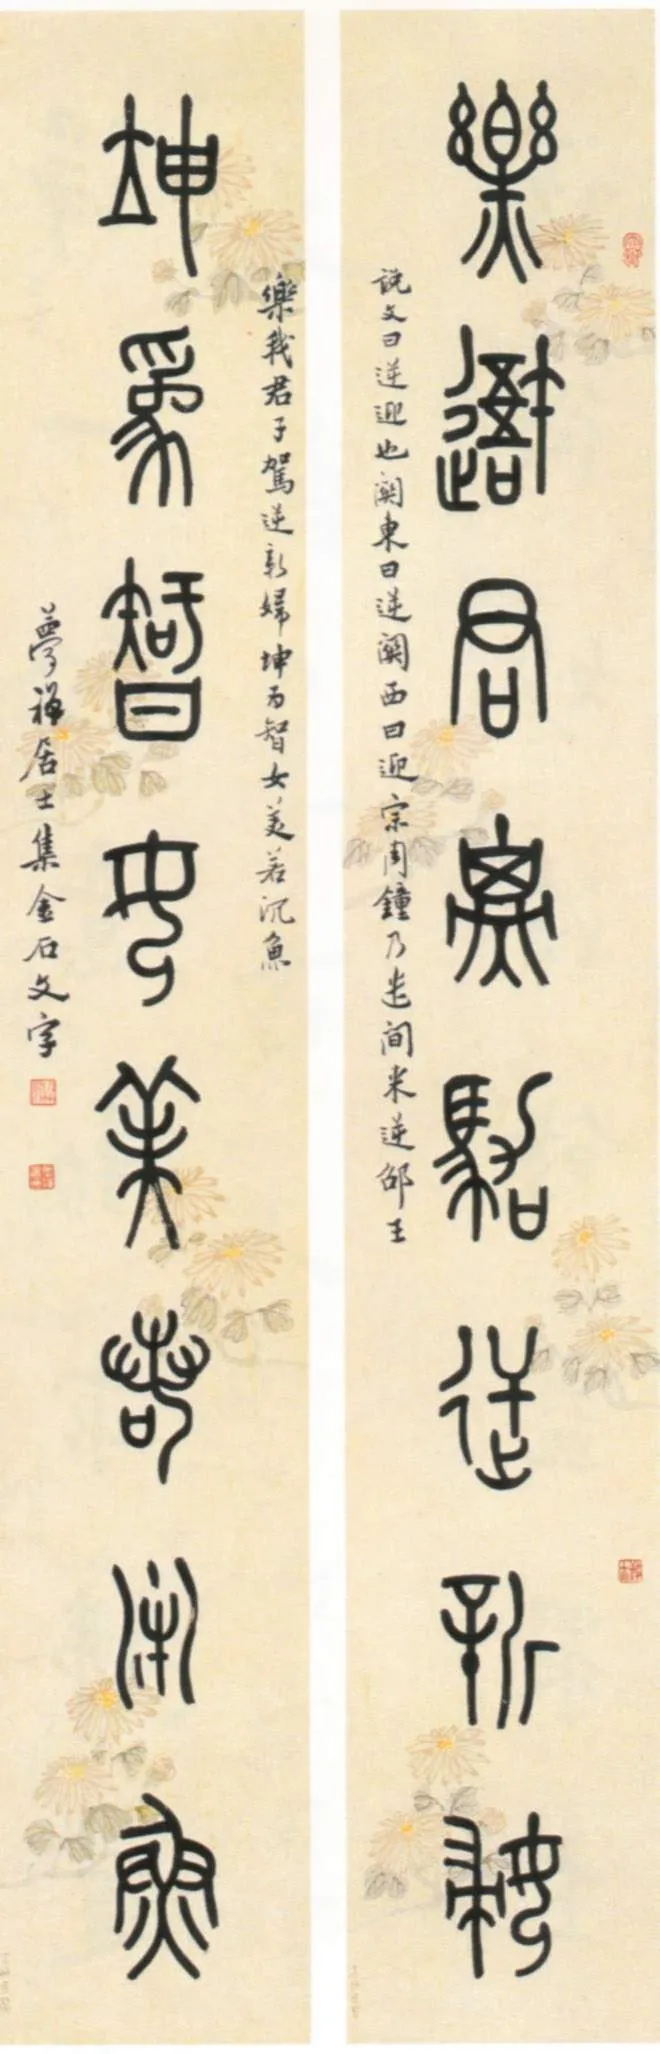 樂我君子駕逆新婦
說文曰逆迎也關東曰逆關西曰迎宗周鐘乃遣間來逆邵王
樂我君子駕逆新婦坤為智女美若沉魚
坤為智女美若沉魚
夢禪居士集金石文字